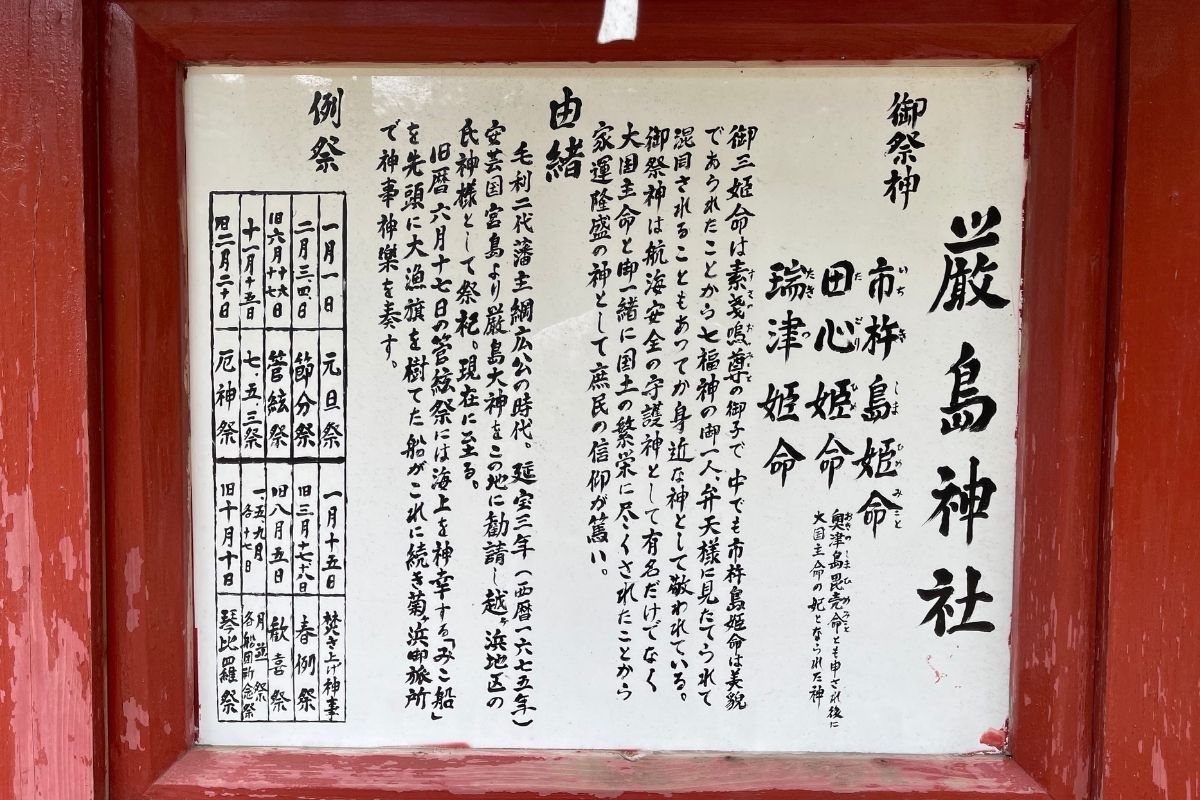 厳島神社
御祭神
市杵島姫命
いちきしまひめみこと
田心姫命
たごりひめ
奥津島毘売命とも申され後に
おきつしまひめのみこと
大国主命の妃となられた神
瑞津姫命
たきつ
御三姫命は素戔嗚尊の御子で 中でも市杵島姫命は美貌
すさのおのみこと
であられたことから七福神の御一人、弁天様に見たてられて
混同されることもあってか身近な神として敬われている。
御祭神は航海安全の守護神として有名だけでなく
大国主命と御一緒に国土の繁栄に尽くされたことから
家運隆盛の神として庶民の信仰が篤い。
由緒
毛利二代藩主綱広公の時代。延宝三年(西暦一六七五年)
安芸国宮島より厳島大神をこの地に勧請し越ヶ浜地区の
氏神様として祭祀。現在に至る。
旧暦六月十七日の管絃祭には海上を神幸する「みこ船」
を先頭に大漁旗を樹てた船がこれに続き菊ヶ浜御旅所
で神事神楽を奏す。
例祭
一月一日 元旦祭 一月十五日 焚き上げ神事
二月三、四日 節分祭 旧三月十七、十八日 春例祭
旧六月十六十七日 管絃祭 旧八月五日 歓喜祭
十一月十五日 七、五、三祭 一、五、九月各十七日 月並祭各船団祈念祭
旧二月二十日 厄神祭 旧十月十日 琴比羅祭